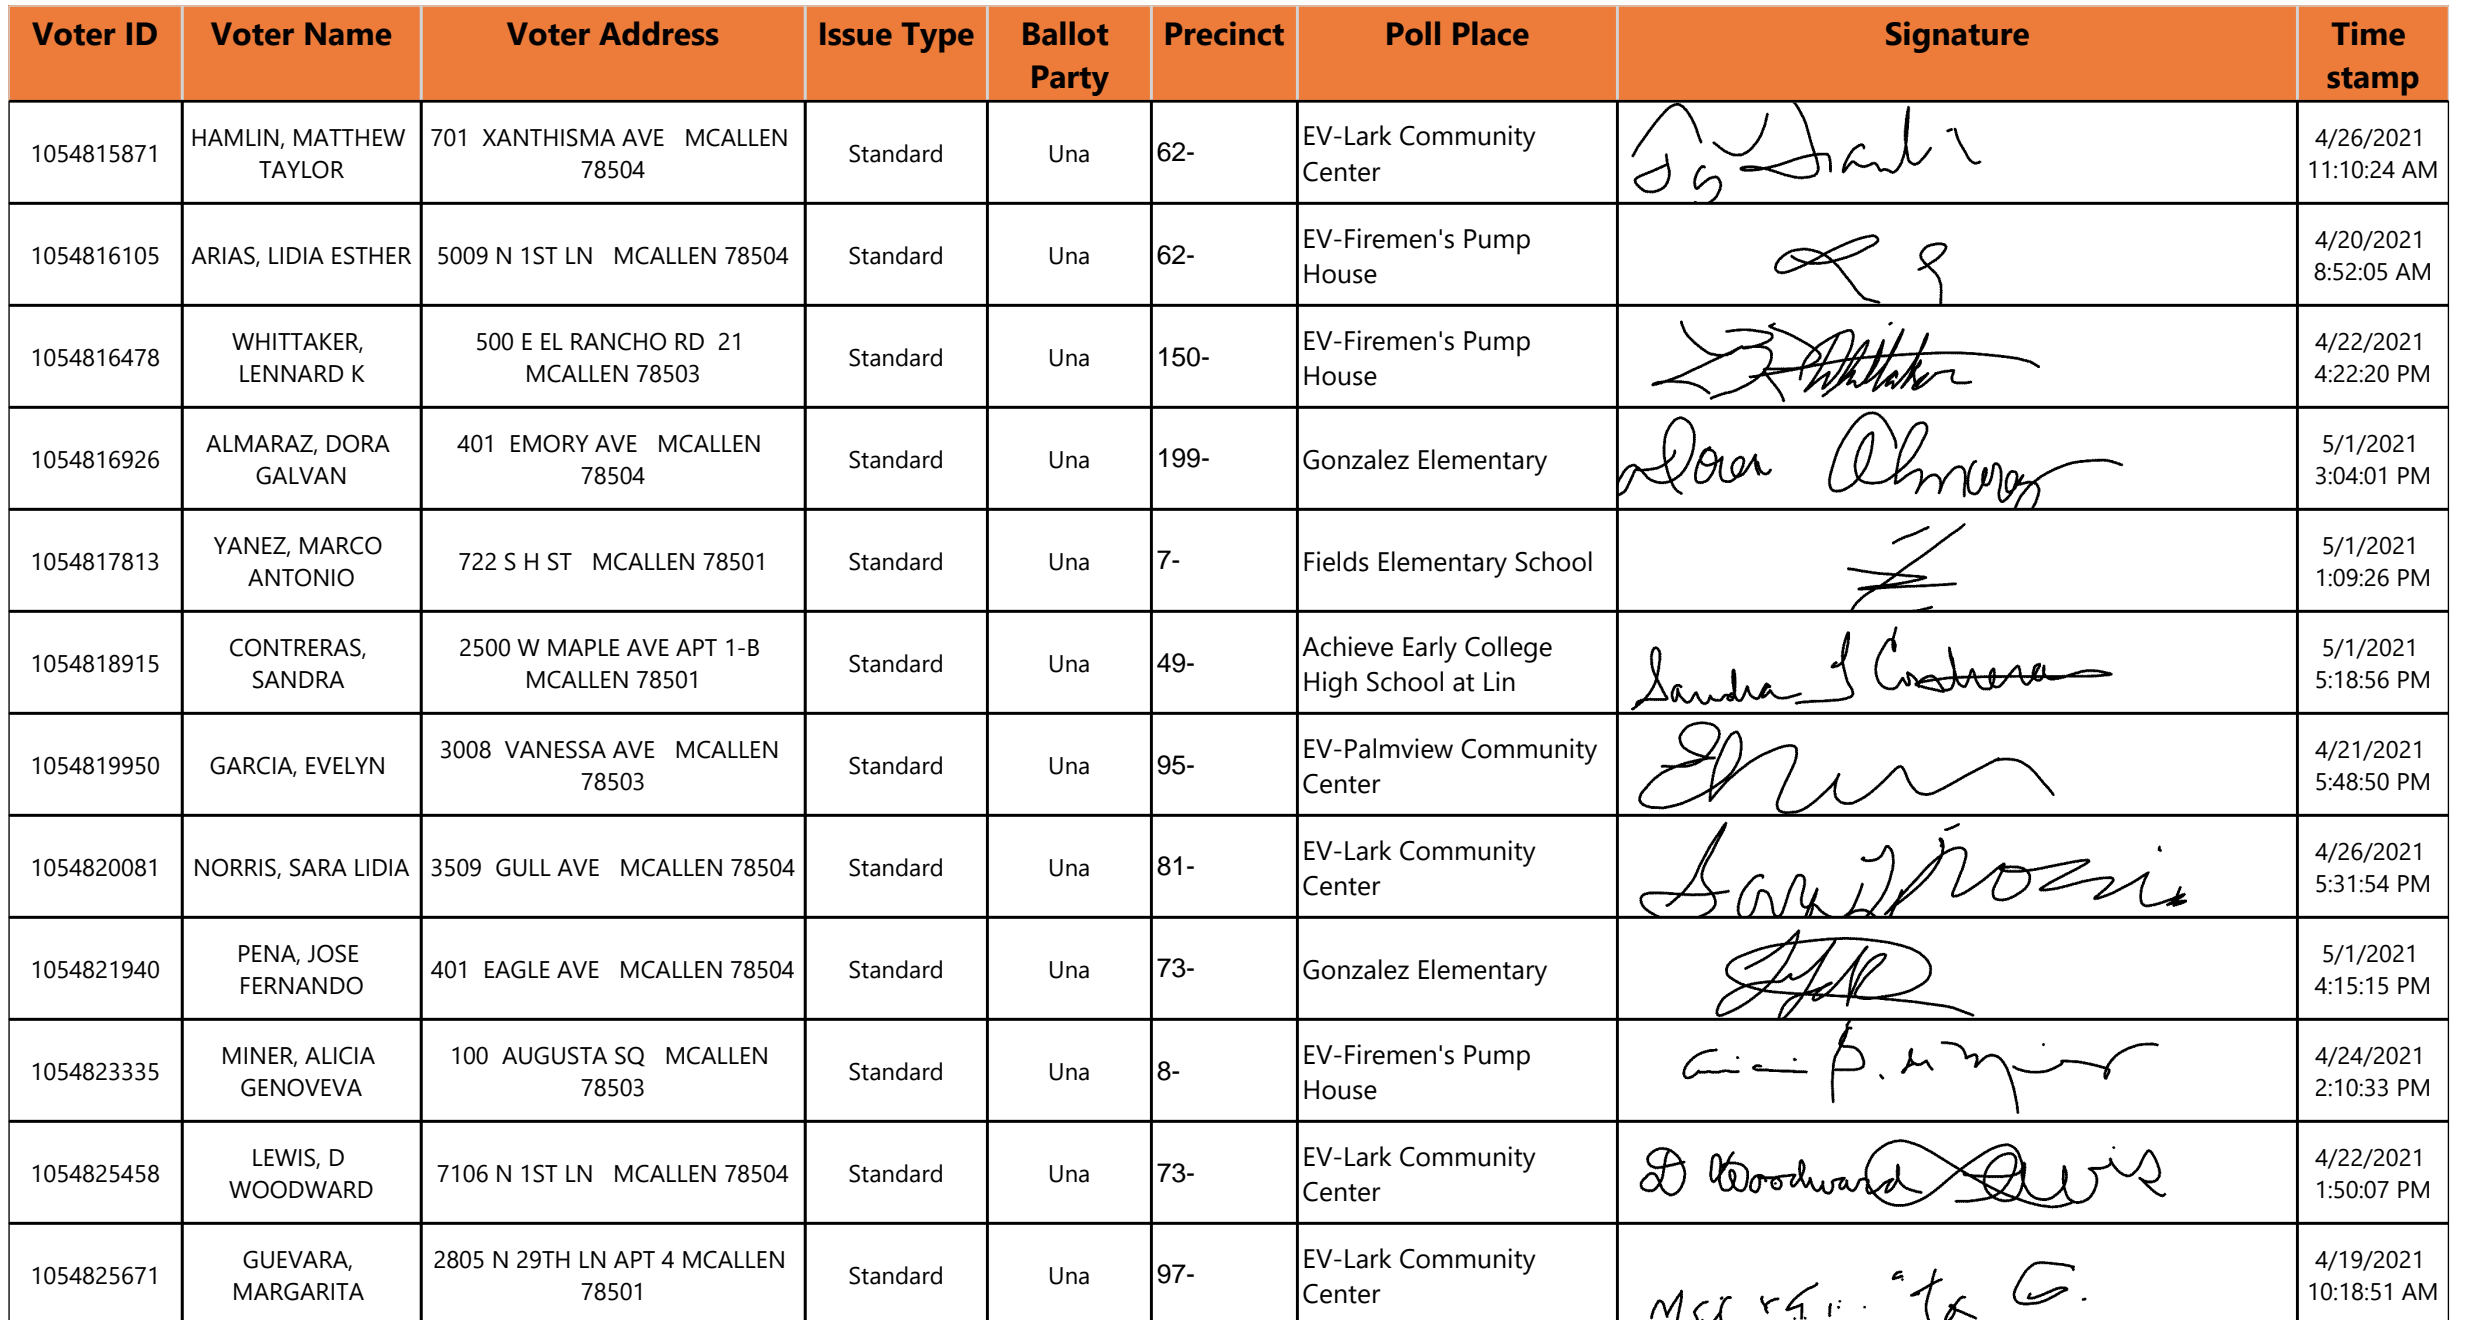 Voter ID Voter Name Voter Address Issue Type Ballot Party Precinct Poll Place Signature Time stamp
1054815871 HAMLIN, MATTHEW TAYLOR 701 XANTHISMA AVE MCALLEN 78504 Standard Una 62- EV-Lark Community Center 4/26/2021 11:10:24 AM
1054816105 ARIAS, LIDIA ESTHER 5009 N 1ST LN MCALLEN 78504 Standard Una 62- EV-Firemen's Pump House 4/20/2021 8:52:05 AM
1054816478 WHITTAKER, LENNARD K 500 E EL RANCHO RD 21 MCALLEN 78503 Standard Una 150- EV-Firemen's Pump House Whittaker 4/22/2021 4:22:20 PM
1054816926 ALMARAZ, DORA GALVAN 401 EMORY AVE MCALLEN 78504 Standard Una 199- Gonzalez Elementary Dora Almaraz 5/1/2021 3:04:01 PM
1054817813 YANEZ, MARCO ANTONIO 722 S H ST MCALLEN 78501 Standard Una 7- Fields Elementary School 5/1/2021 1:09:26 PM
1054818915 CONTRERAS, SANDRA 2500 W MAPLE AVE APT 1-B MCALLEN 78501 Standard Una 49- Achieve Early College High School at Lin Sandra J Contreras 5/1/2021 5:18:56 PM
1054819950 GARCIA, EVELYN 3008 VANESSA AVE MCALLEN 78503 Standard Una 95- EV-Palmview Community Center 4/21/2021 5:48:50 PM
1054820081 NORRIS, SARA LIDIA 3509 GULL AVE MCALLEN 78504 Standard Una 81- EV-Lark Community Center Sara Norris 4/26/2021 5:31:54 PM
1054821940 PENA, JOSE FERNANDO 401 EAGLE AVE MCALLEN 78504 Standard Una 73- Gonzalez Elementary 5/1/2021 4:15:15 PM
1054823335 MINER, ALICIA GENOVEVA 100 AUGUSTA SQ MCALLEN 78503 Standard Una 8- EV-Firemen's Pump House 4/24/2021 2:10:33 PM
1054825458 LEWIS, D WOODWARD 7106 N 1ST LN MCALLEN 78504 Standard Una 73- EV-Lark Community Center D Woodward Lewis 4/22/2021 1:50:07 PM
1054825671 GUEVARA, MARGARITA 2805 N 29TH LN APT 4 MCALLEN 78501 Standard Una 97- EV-Lark Community Center 4/19/2021 10:18:51 AM